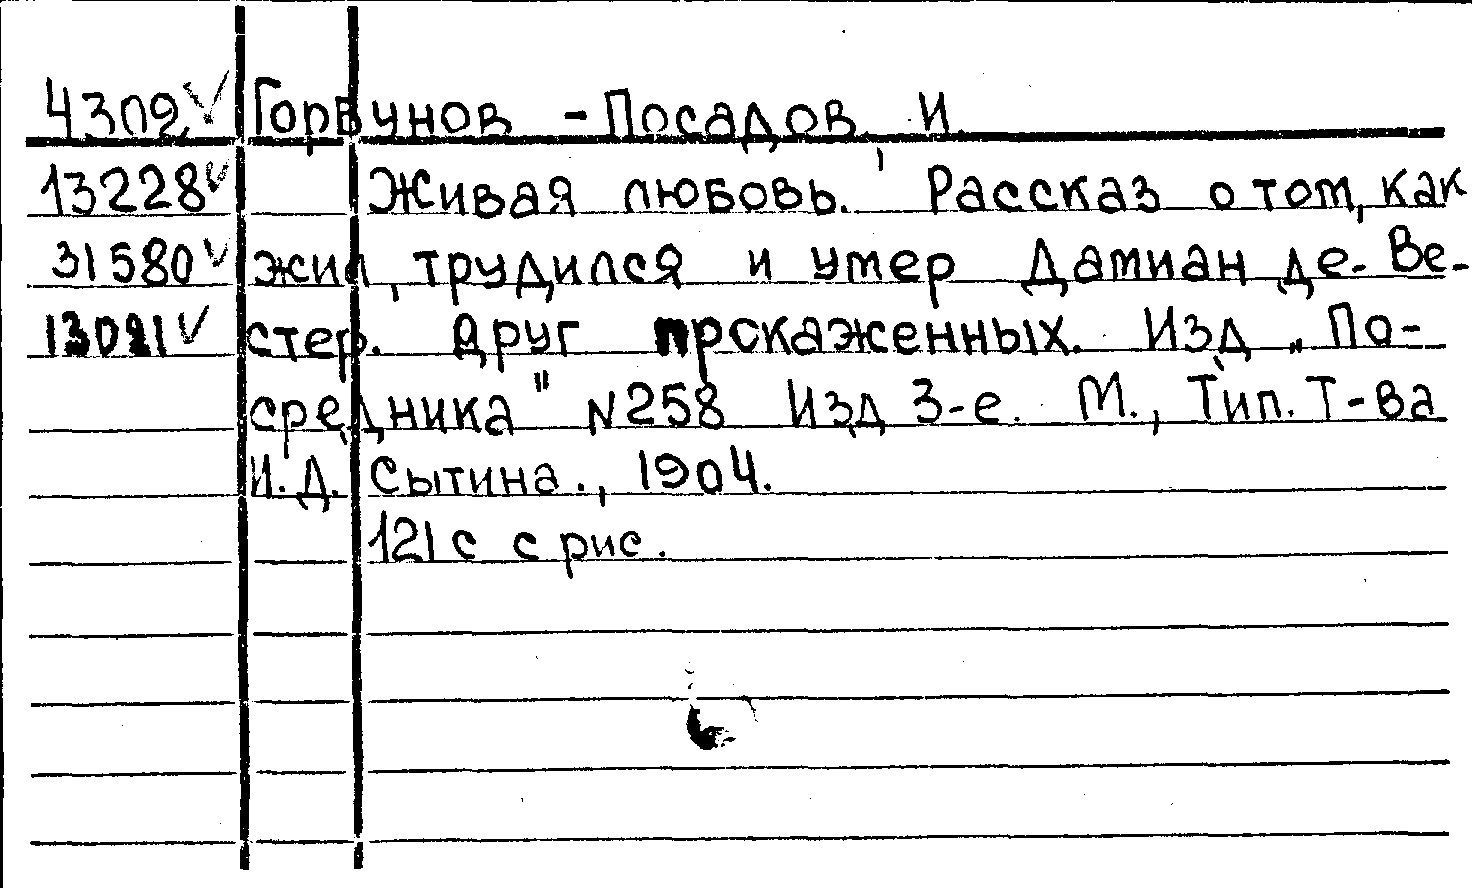 4302 Горбунов - Посадов, И.
13228 Живая любовь. Рассказ о том, как
31580 жил, трудился и умер Дамиан де-Ве-
13021 стер. Друг прокаженных. Изд. „По-
средника" N258 Изд 3-е. М., Тип. Т-ва
И.Д. Сытина., 1904.
121 с с рис.